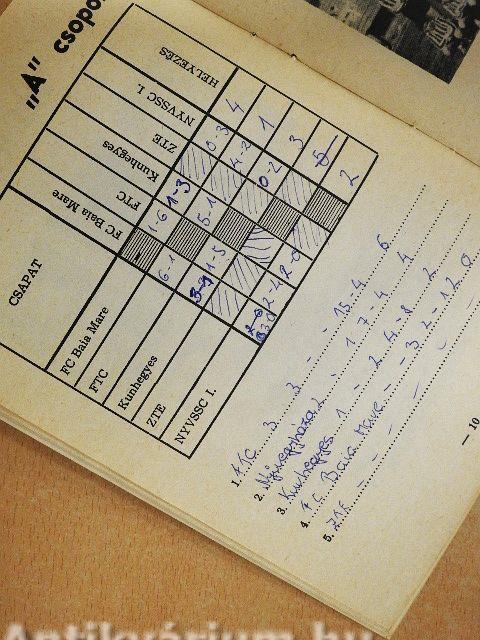 „A" csopo
CSAPAT FC Baia Mare FTC Kunhegyes ZTE NYVSSC I. HELYEZÉS
FC Baia Mare 1-6 1-3 0-3 4
FTC 6-1 5-1 4-2 1
Kunhegyes 1-5 0-2 3
ZTE
NYVSSC I. 2-4 2-0 2
1. FTC 3 3 - - 15-4 6
2. Nyíregyháza 2 - 1 7-4 4
3. Kunhegyes 1 - 2 4-8 2
4. FC Baia Mare - - 3 2-12 0
5. ZTE - - - -
— 10
Antikvárium.hu